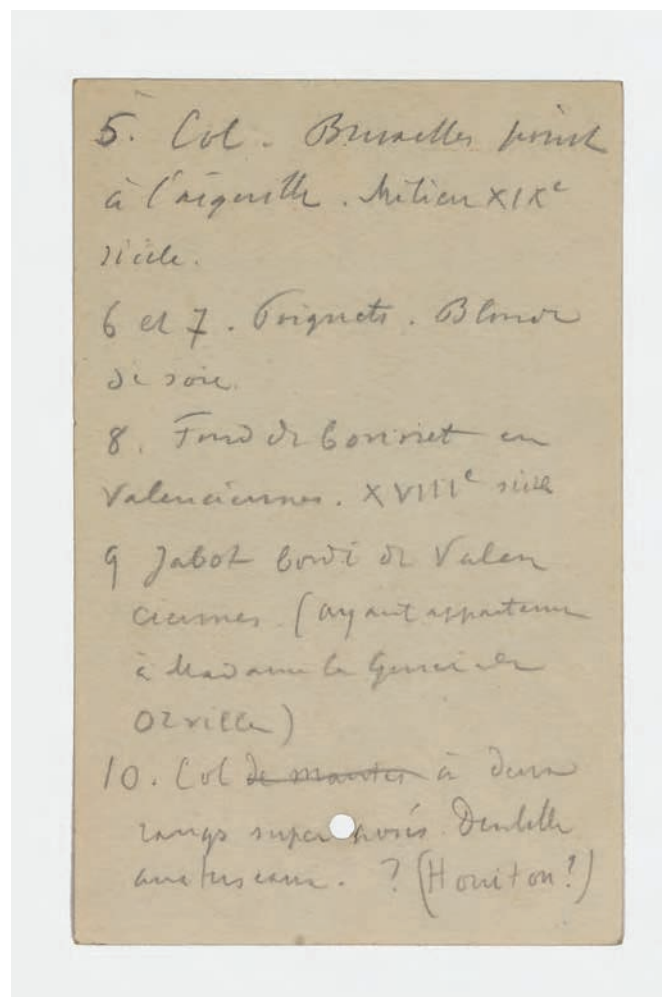 5. Col. Bruxelles point
à l'aiguille. Milieu XIXe
siècle.
6 et 7. Poignets. Blonde
de soie.
8. Fond de bonnet en
Valenciennes. XVIIIe siècle
9 Jabot bordé de Valen
ciennes. (ayant appartenu
à Madame la Générale
Orville)
10. Col de mantes à deux
rangs superposés. Dentelle
aux fuseaux. ? (Honiton?)